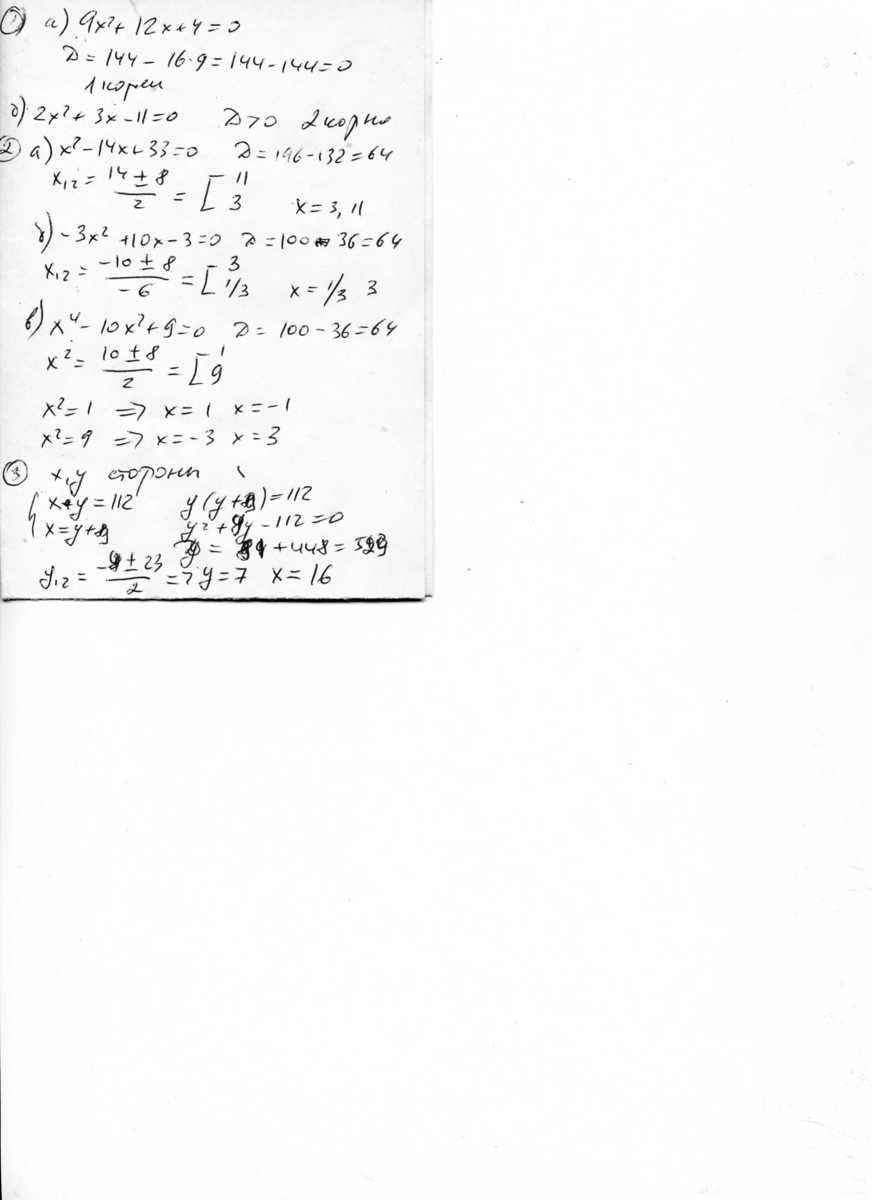 ① а) 9x²+ 12x+4=0
D = 144 - 16·9 = 144 - 144 = 0
1 корень
б) 2x²+ 3x - 11=0 D>0 2 корня
② а) x² - 14x+33=0 D = 196 - 132 = 64
x₁₂ = (14 ± 8)/2 = [ 11 3 x = 3, 11
б) -3x² +10x - 3=0 D = 100 - 36 = 64
x₁₂ = (-10 ± 8)/-6 = [ 3 1/3 x = 1/3 3
в) x⁴ - 10x² + 9=0 D = 100 - 36 = 64
x² = (10 ± 8)/2 = [ 1 9
x² = 1 => x = 1 x = -1
x² = 9 => x = -3 x = 3
③ x, y стороны
{ x·y = 112 y(y+9) = 112
x = y+9 y² + 9y - 112 = 0
D = 81 + 448 = 529
y₁₂ = (-9 ± 23)/2 => y = 7 x = 16